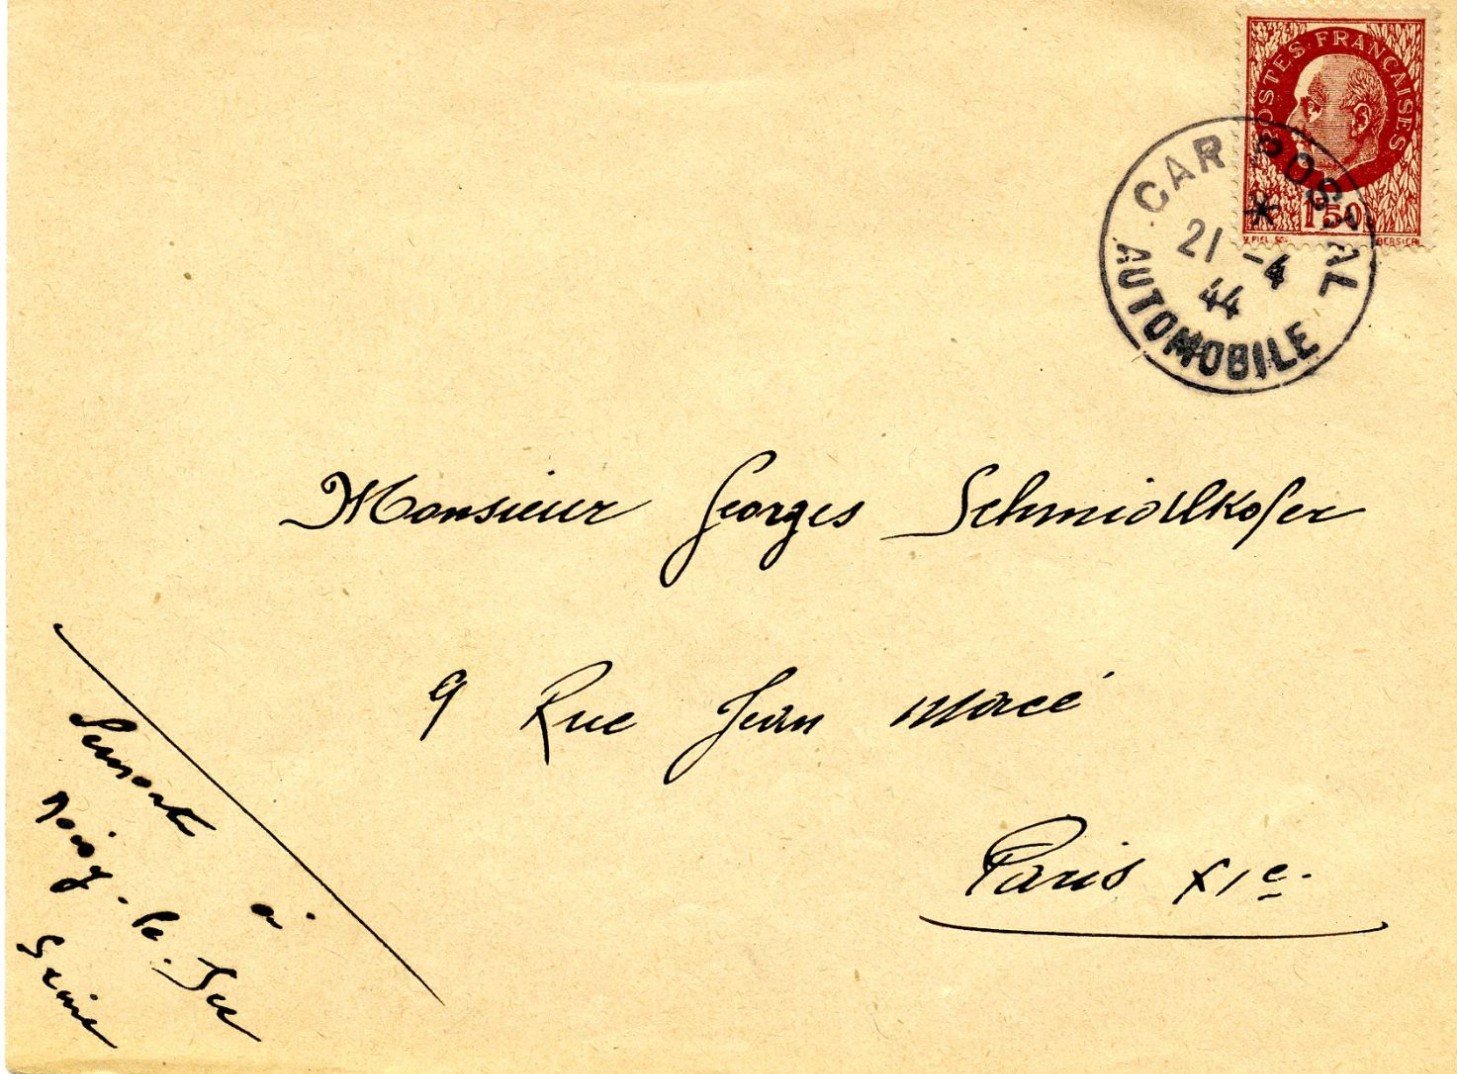 POSTES FRANÇAISES
1F50
BERSIER
CAR POSTAL
*
21 -4
44
AUTOMOBILE
Monsieur Georges Schmidlkofer
9 Rue Jean Macé
Paris XIe.
à
Noisy-le-Sec
Seine